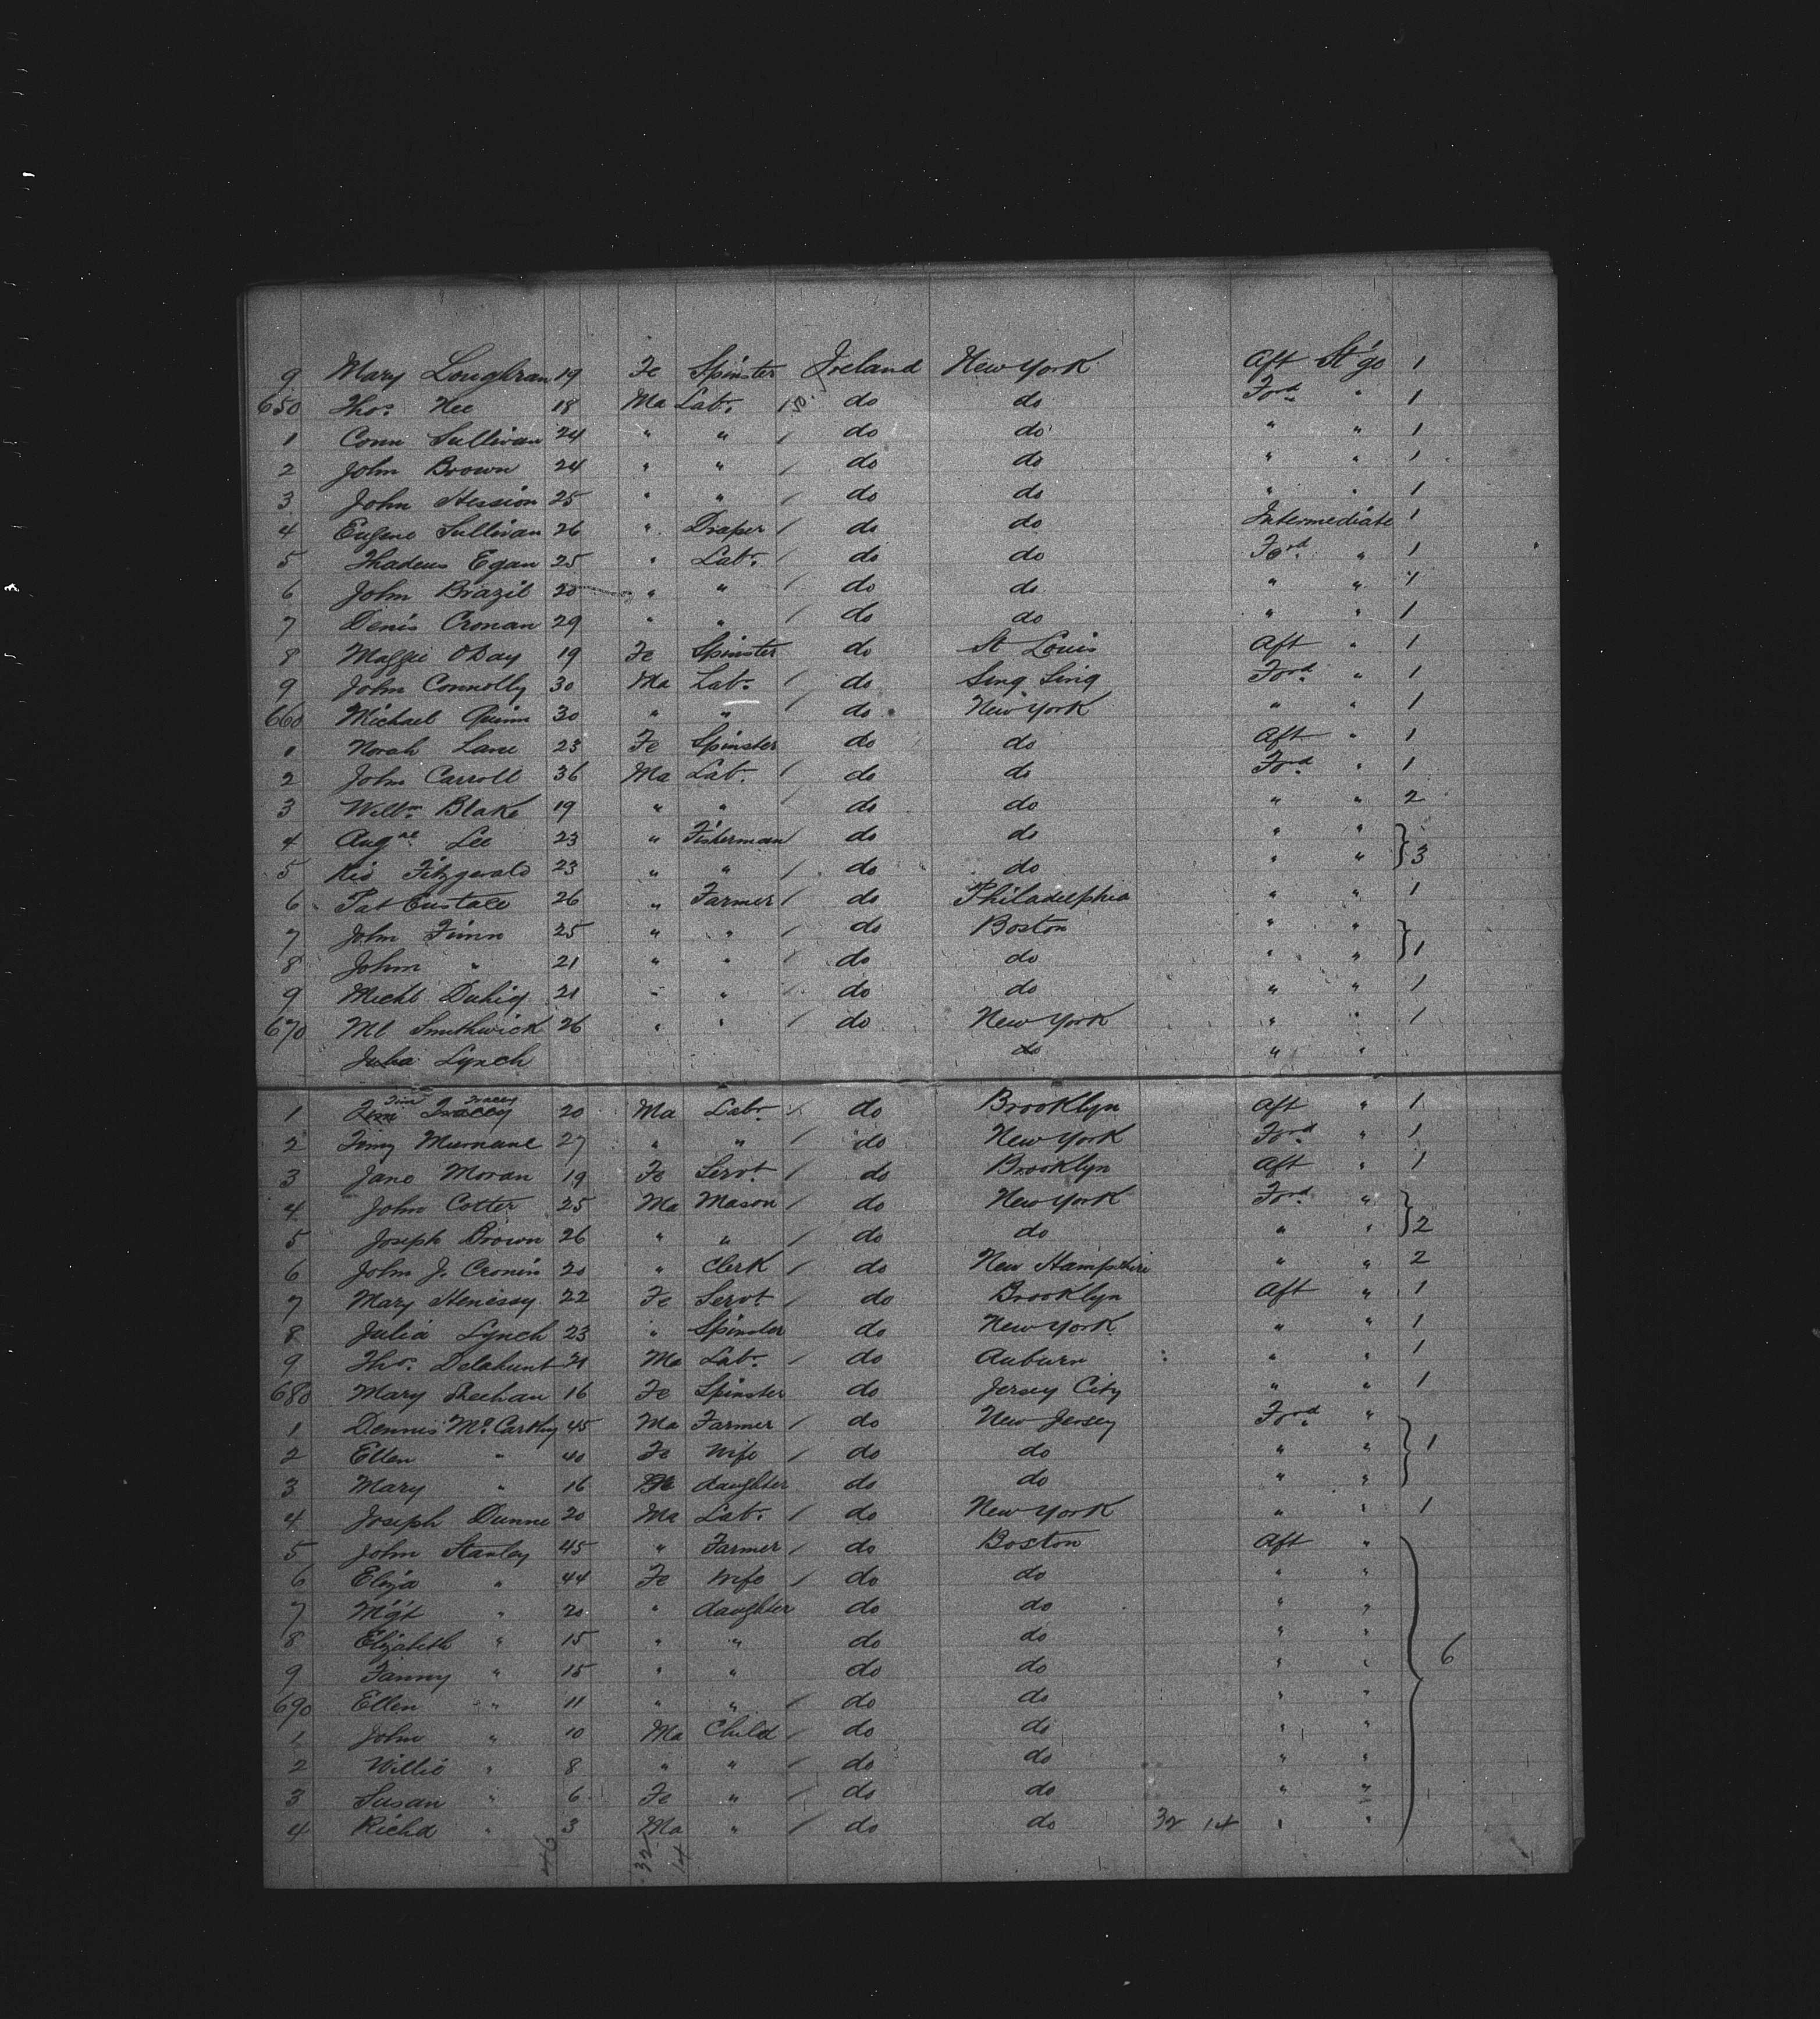 9 Mary Loughran 19 Fe Spinster Ireland New York Aft St'ge 1
650 Thos. Nee 18 Ma Lab. do do Ford " 1
1 Conn Sullivan 24 " " / do do " " 1
2 John Brown 24 " " / do do " " 1
3 John Hession 25 " " / do do " " 1
4 Eugene Sullivan 26 " Draper / do do Intermediate 1
5 Thadeus Egan 25 " Lab. / do do Ford " 1
6 John Brazil 20 " " / do do " " 1
7 Denis Cronan 29 " " / do do " " 1
8 Maggie ODay 19 Fe Spinster do St Louis Aft " 1
9 John Connolly 30 Ma Lab. / do Sing Sing Ford " 1
660 Michael Quinn 30 " " / do New York " " 1
1 Norah Lane 23 Fe Spinster do do Aft " 1
2 John Carroll 36 Ma Lab. / do do Ford " 1
3 Willm Blake 19 " " / do do " " 2
4 Augne Lee 23 " Fisherman / do do " " } 3
5 Fitzgerald 23 " " / do do " "
6 Pat Eustace 26 " Farmer / do Philadelphia " " 1
7 John Finn 25 " " / do Boston " " } 1
8 John " 21 " " / do do " "
9 Michl Duhig 21 " " / do do " " 1
670 Ml Smithwick 26 " " / do New York " " 1
Julia Lynch do " "
1 Tim Tracey 20 Ma Lab. do Brooklyn Aft " 1
2 Timy Murnane 27 " " / do New York Ford " 1
3 Jane Moran 19 Fe Servt. / do Brooklyn Aft " 1
4 John Cotter 25 Ma Mason / do New York Ford " } 2
5 Joseph Brown 26 " " / do do " "
6 John J. Cronin 20 " Clerk / do New Hampshire " " 2
7 Mary Henessy 22 Fe Servt. / do Brooklyn Aft " 1
8 Julia Lynch 23 " Spinster do New York " " 1
9 Thos. Delahunt 21 Ma Lab. / do Auburn " " 1
680 Mary Sheehan 16 Fe Spinster do Jersey City " " 1
1 Dennis McCarthy 45 Ma Farmer / do New Jersey Ford " } 1
2 Ellen " 40 Fe Wife / do do " "
3 Mary " 16 daughter do do " "
4 Joseph Dunne 20 Ma Lab. / do New York " " 1
5 John Stanley 45 " Farmer / do Boston Aft " } 6
6 Eliza " 44 Fe Wife / do do " "
7 Mgt " 20 " daughter do do " "
8 Elizabeth " 15 " " do do " "
9 Fanny " 15 " " do do " "
690 Ellen " 11 " " / do do " "
1 John " 10 Ma Child / do do " "
2 Willie " 8 " " / do do " "
3 Susan " 6 Fe " / do do " "
4 Richd " 3 Ma " / do do 32 14 " "
46 32 14